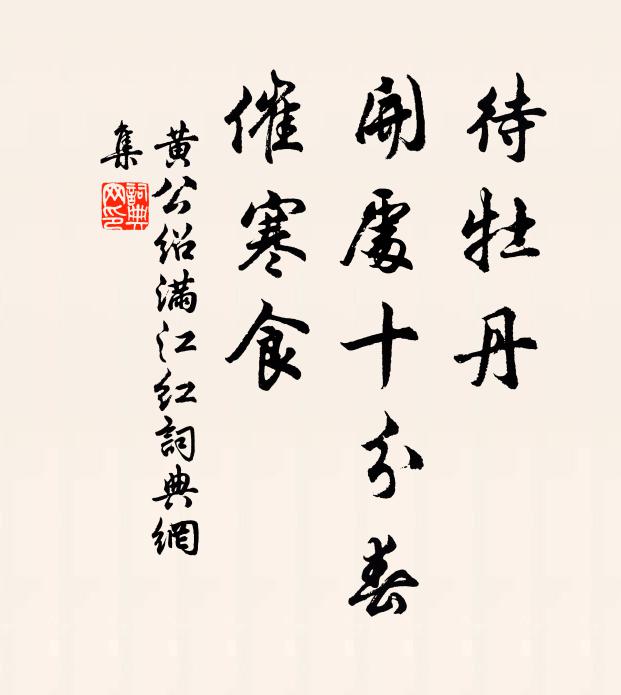 待牡丹
開處十分春
催寒食
黄公紹滿江紅詞典網
集
詞典
网印